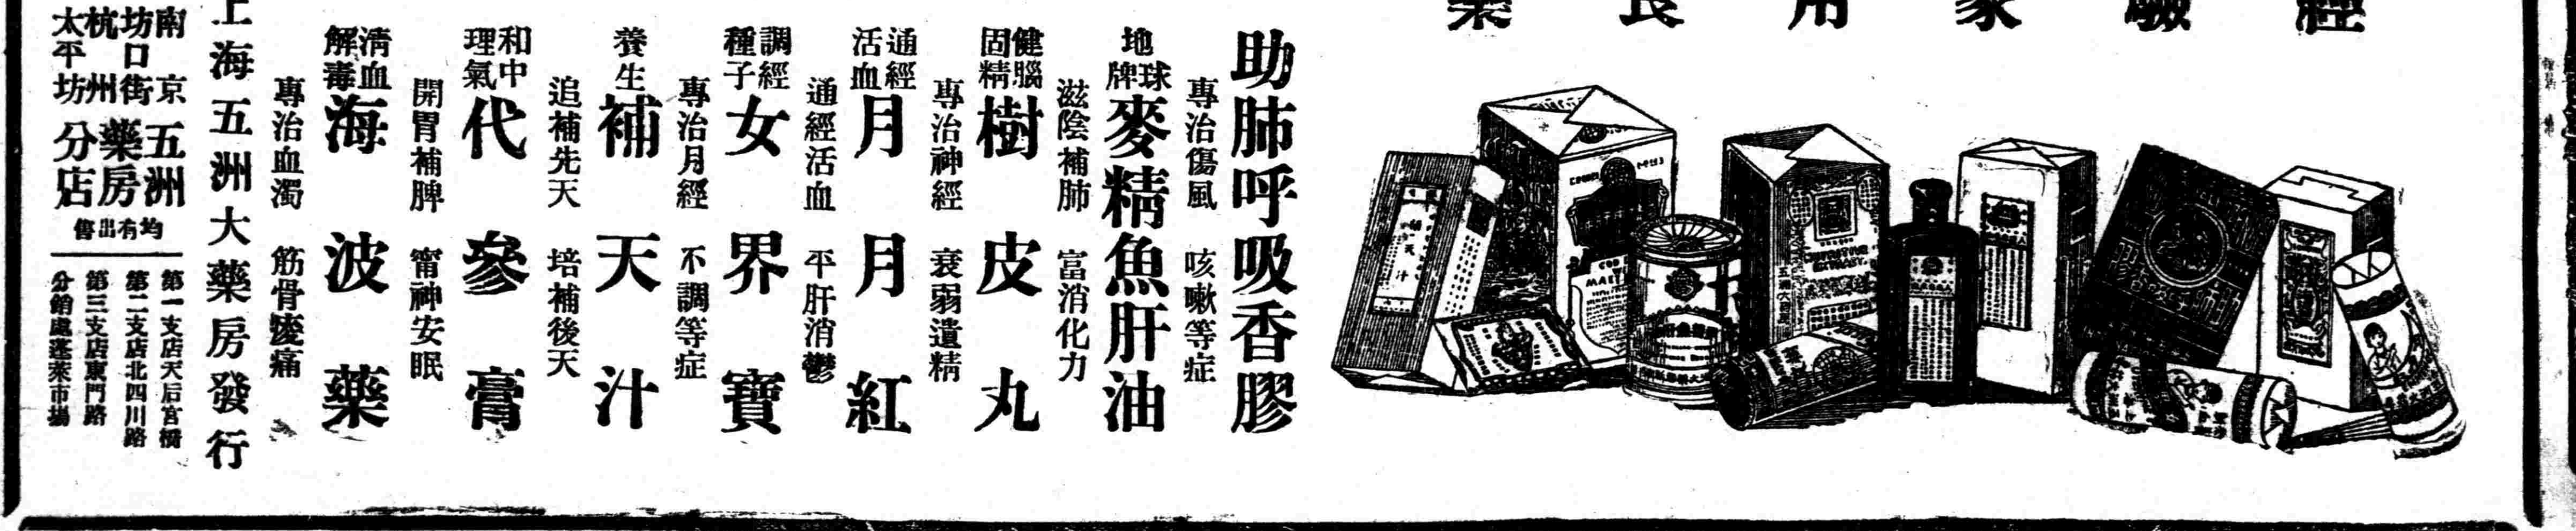 經驗家用良藥
助肺呼吸香膠
專治傷風 咳嗽等症
地球牌
麥精魚肝油
滋陰補肺 富消化力
健腦固精
樹皮丸
專治神經 衰弱遺精
通經活血
月月紅
通經活血 平肝消鬱
調經種子
女界寶
專治月經 不調等症
養生
補天汁
追補先天 培補後天
和中理氣
代參膏
開胃補脾 甯神安眠
清血解毒
海波藥
專治血濁 筋骨痠痛
上海五洲大藥房發行
南京
坊口街
杭州
太平坊
五洲藥房分店
均有出售
第一支店天后宮橋
第二支店北四川路
第三支店東門路
分銷處蓬萊市場